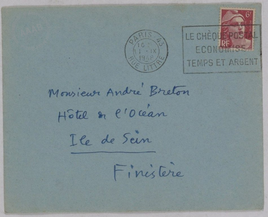 PARIS
LE CHÈQUE POSTAL
ÉCONOMISE
TEMPS ET ARGENT
Monsieur André Breton
Hôtel de l'Océan
Ile de Sein
Finistère